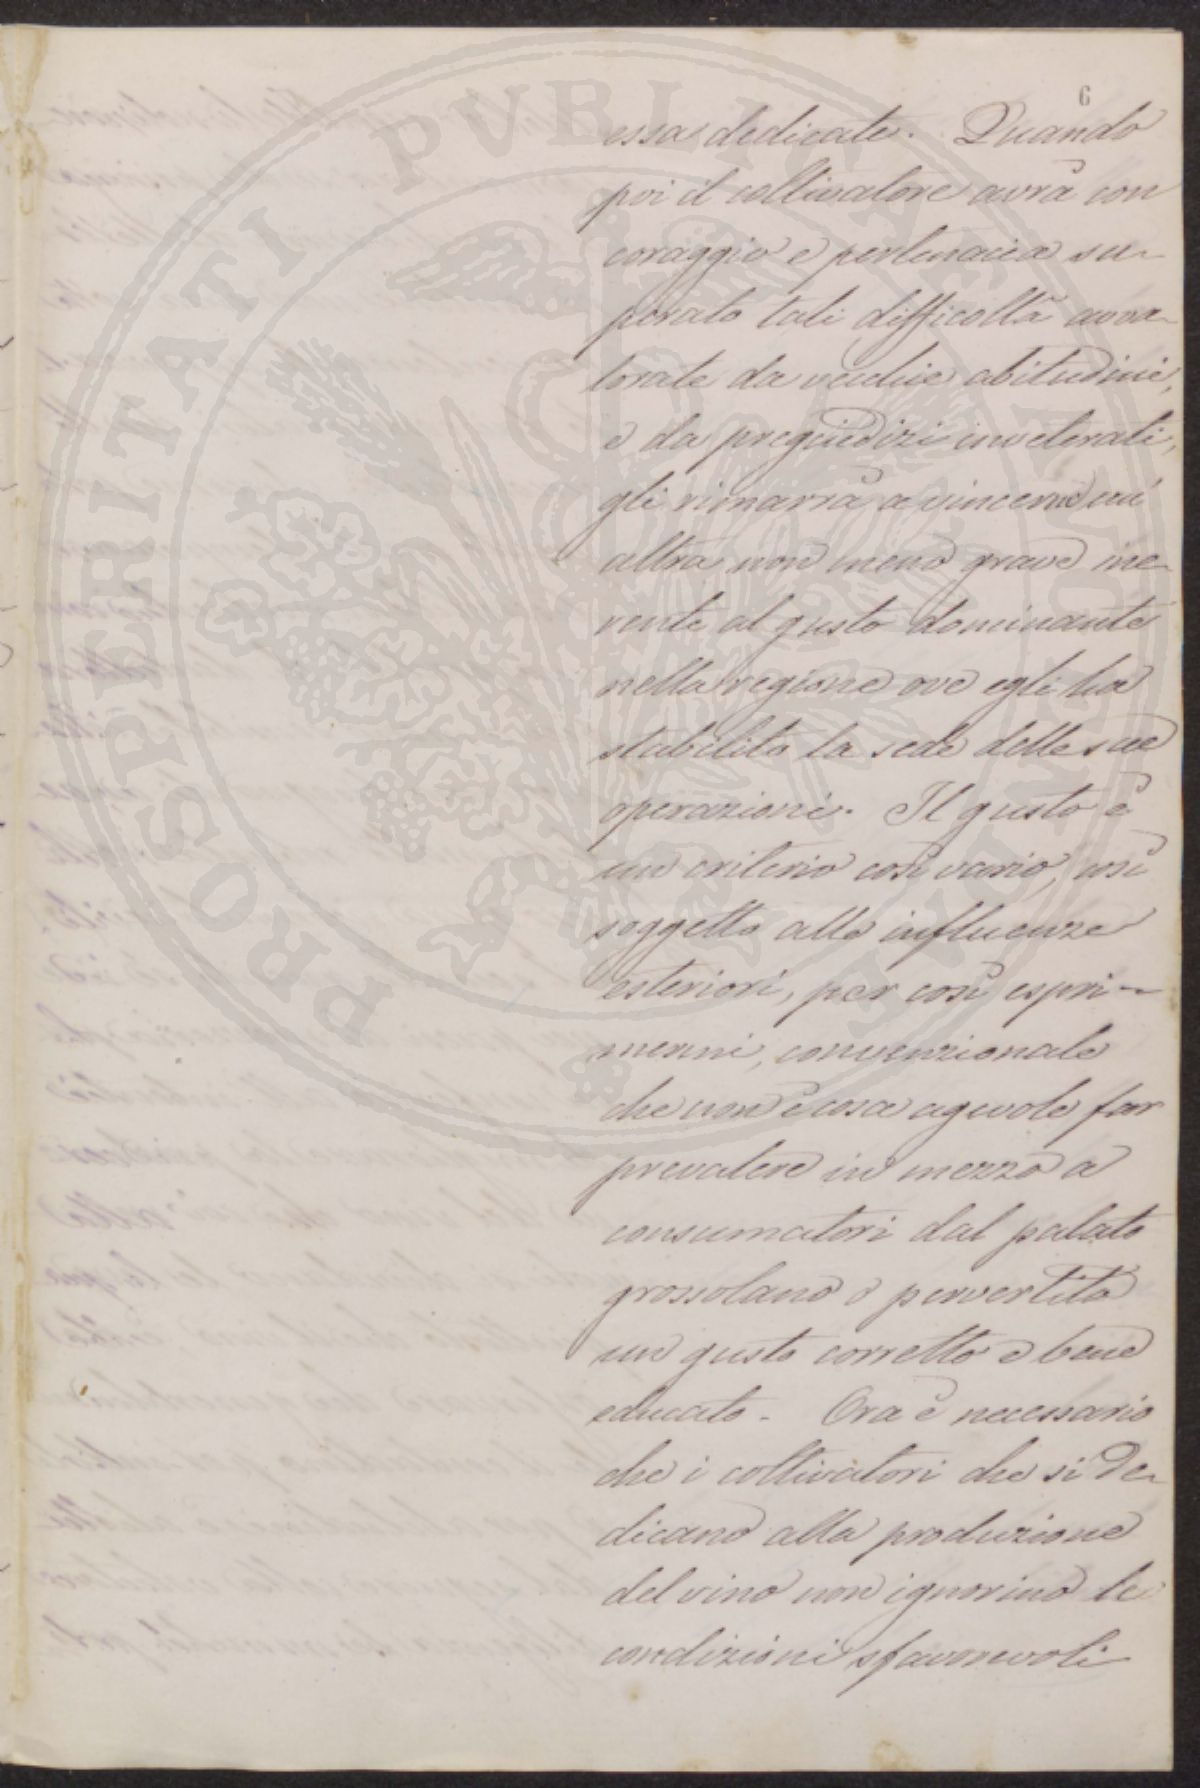 6
essa dedicate. Quando
poi il coltivatore avrà con
coraggio e pertinacia su-
perato tali difficoltà avva-
lorate da vecchie abitudini,
e da pregiudizi inveterati,
gli rimarrà a vincerne un'
altra non meno grave ine-
rente al gusto dominante
nella regione ove egli ha
stabilito la sede delle sue
operazioni. Il gusto è
un criterio così vario, così
soggetto alle influenze
esteriori, per così espri-
mermi, convenzionale
che non è cosa agevole far
prevalere in mezzo a
consumatori dal palato
grossolano o pervertito
un gusto corretto e bene
educato. Ora è necessario
che i coltivatori che si de-
dicano alla produzione
del vino non ignorino le
condizioni sfavorevoli
PROSPERITATI PVBLICAE